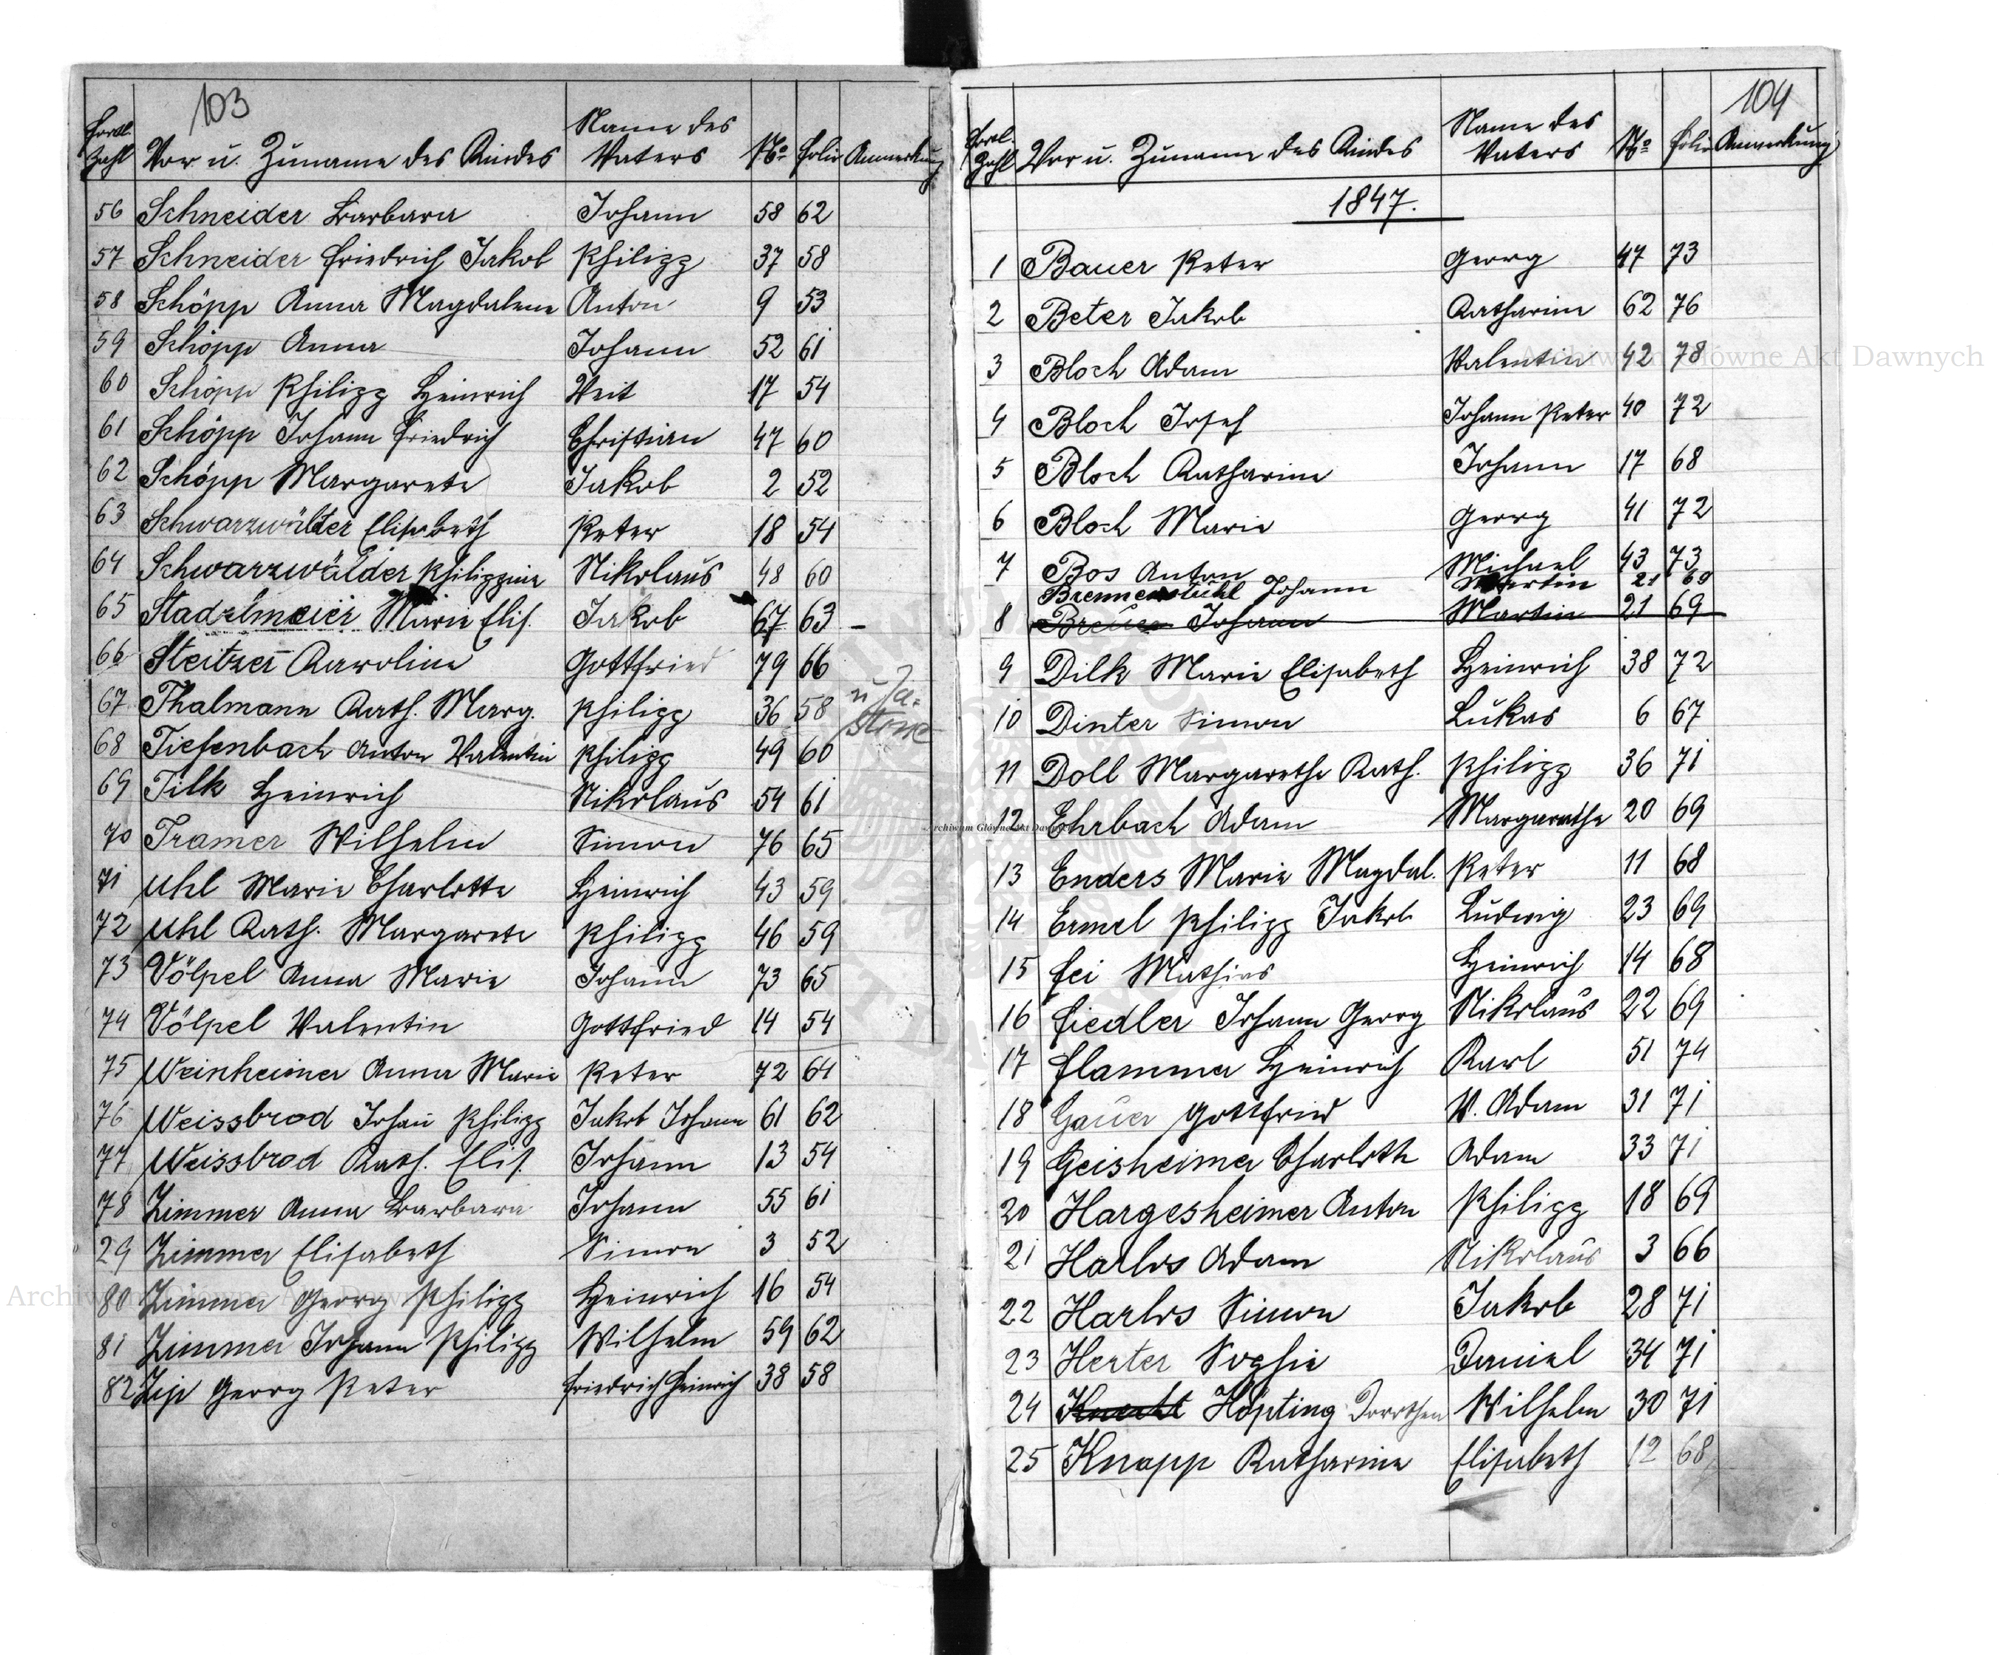 103
Fortl. Zahl Vor u. Zuname des Kindes Name des Vaters No Folio Anmerkung
56 Schneider Barbara Johann 58 62
57 Schneider Friedrich Jakob Philipp 37 58
58 Schöpp Anna Magdalena Anton 9 53
59 Schöpp Anna Johann 52 61
60 Schöpp Philipp Heinrich Veit 17 54
61 Schöpp Johann Friedrich Christian 47 60
62 Schöpp Margarete Jakob 2 52
63 Schwarzwälder Elisabeth Peter 18 54
64 Schwarzwälder Philippine Nikolaus 48 60
65 Stadelmeier Marie Elis. Jakob 67 63 –
66 Steitzer Karoline Gottfried 79 66
67 Thalmann Kath. Marg. Philipp 36 58
68 Tiefenbach Anton Valentin Philipp 49 60
69 Tilk Heinrich Nikolaus 54 61
70 Tramer Wilhelm Simon 76 65
71 Uhl Marie Charlotte Heinrich 43 59
72 Uhl Kath. Margarete Philipp 46 59
73 Völpel Anna Marie Johann 73 65
74 Völpel Valentin Gottfried 14 54
75 Weinheimer Anna Marie Peter 72 64
76 Weissbrod Johan Philipp Jakob Johann 61 62
77 Weissbrod Kath. Elis. Johann 13 54
78 Zimmer Anna Barbara Johann 55 61
29 Zimmer Elisabeth Simon 3 52
80 Zimmer Georg Philipp Heinrich 16 54
81 Zimmer Johann Philipp Wilhelm 59 62
82 Zip Georg Peter Friedrich Heinrich 38 58
104
Fortl. Zahl Vor u. Zuname des Kindes Name des Vaters No Folio Anmerkung
1847.
1 Bauer Peter Georg 47 73
2 Beter Jakob Katharina 62 76
3 Bloch Adam Valentin 42 78
4 Bloch Josef Johann Peter 40 72
5 Bloch Katharina Johann 17 68
6 Bloch Marie Georg 41 72
7 Bos Anton Michael 43 73
Brennenstuhl Johann Martin 21 69
8 Breuer Johann Martin 21 69
9 Dilk Marie Elisabeth Heinrich 38 72
10 Dinter Simon Lukas 6 67
11 Doll Margarethe Kath. Philipp 36 71
12 Ehrbach Adam Margarethe 20 69
13 Enders Marie Magdal. Peter 11 68
14 Ermel Philipp Jakob Ludwig 23 69
15 Fei Mathias Heinrich 14 68
16 Fiedler Johann Georg Nikolaus 22 69
17 Flammer Heinrich Karl 51 74
18 Gauer Gottfried V. Adam 31 71
19 Geisheimer Charlotte Adam 33 71
20 Hargesheimer Anton Philipp 18 69
21 Harlos Adam Nikolaus 3 66
22 Harlos Simon Jakob 28 71
23 Herter Sophie Daniel 34 71
24 Knecht Höpting Dorothea Wilhelm 30 71
25 Knapp Katharina Elisabeth 12 68
Archiwum Główne Akt Dawnych